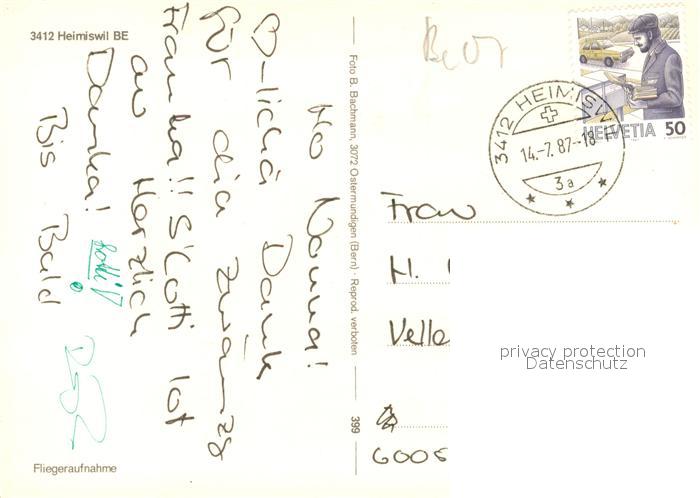 3412 Heimiswil BE
Ho Nonna!
♡-lichä Dank
für dia zwänzg
Franka!! S'Lotti lot
au Herzlich
Danka!
Bis Bald
Fliegeraufnahme
Foto B. Bachmann, 3072 Ostermundigen (Bern) · Reprod. verboten
399
HELVETIA 50
3412 HEIMISWIL
14.-7. 87--18
3a
Frau
M.
Velle
6005
privacy protection
Datenschutz